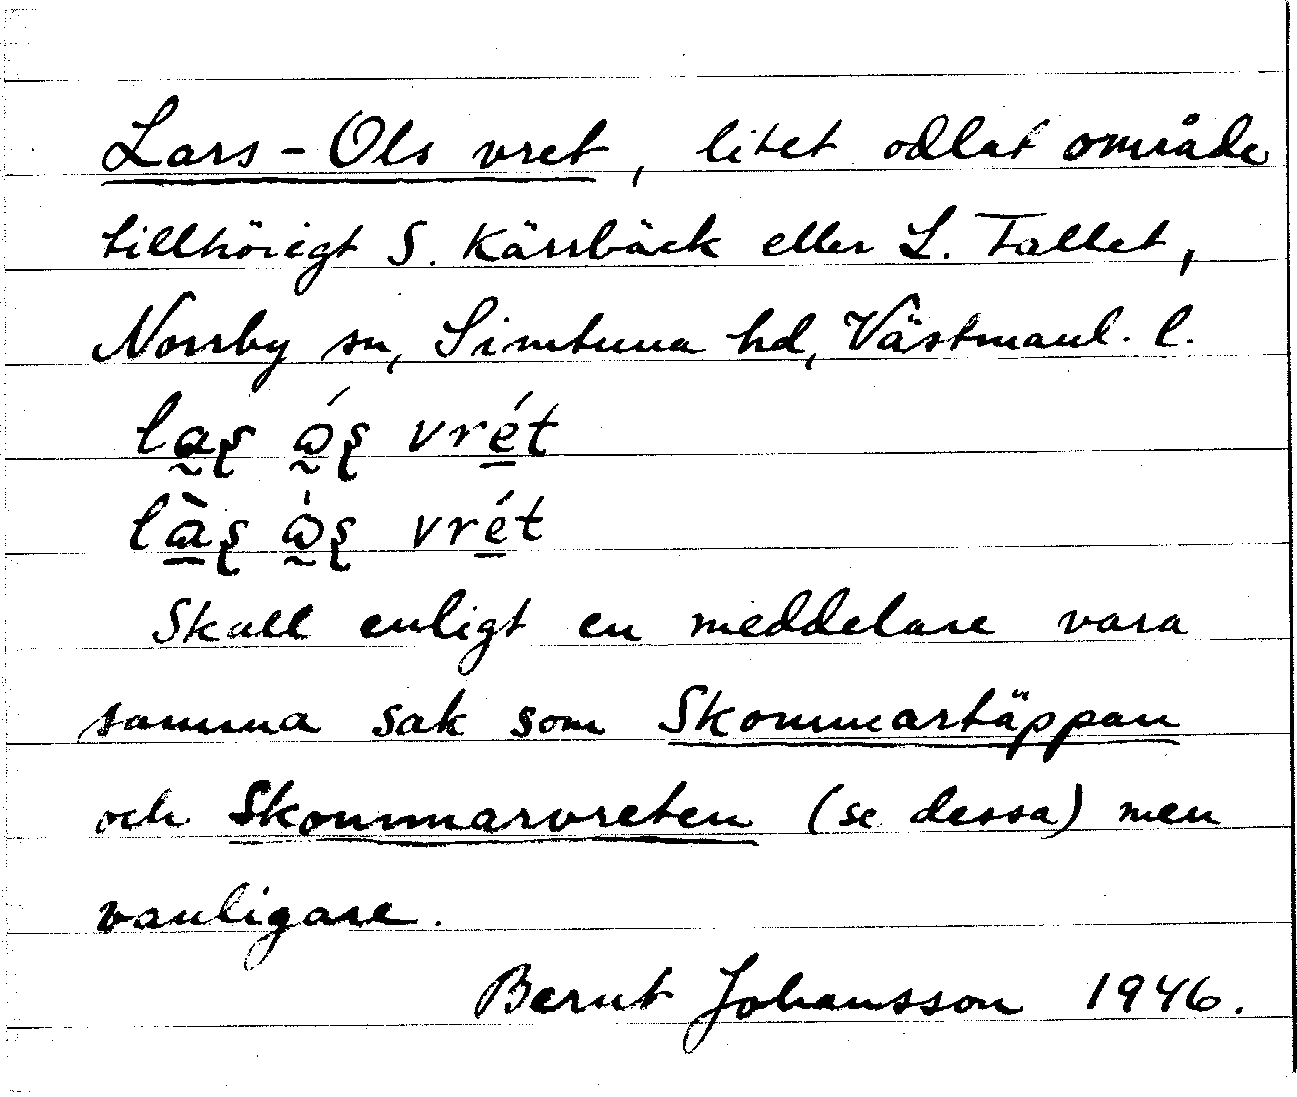 Lars-Ols vret, litet odlat område
tillhörigt S. Kärrbäck eller L. Tallet,
Norrby sn, Simtuna hd, Västmanl. l.
vrét
vrét
Skall enligt en meddelare vara
samma sak som Skommartäppan
och Skommarvreten (se dessa) men
vanligare.
Bernt Johansson 1946.